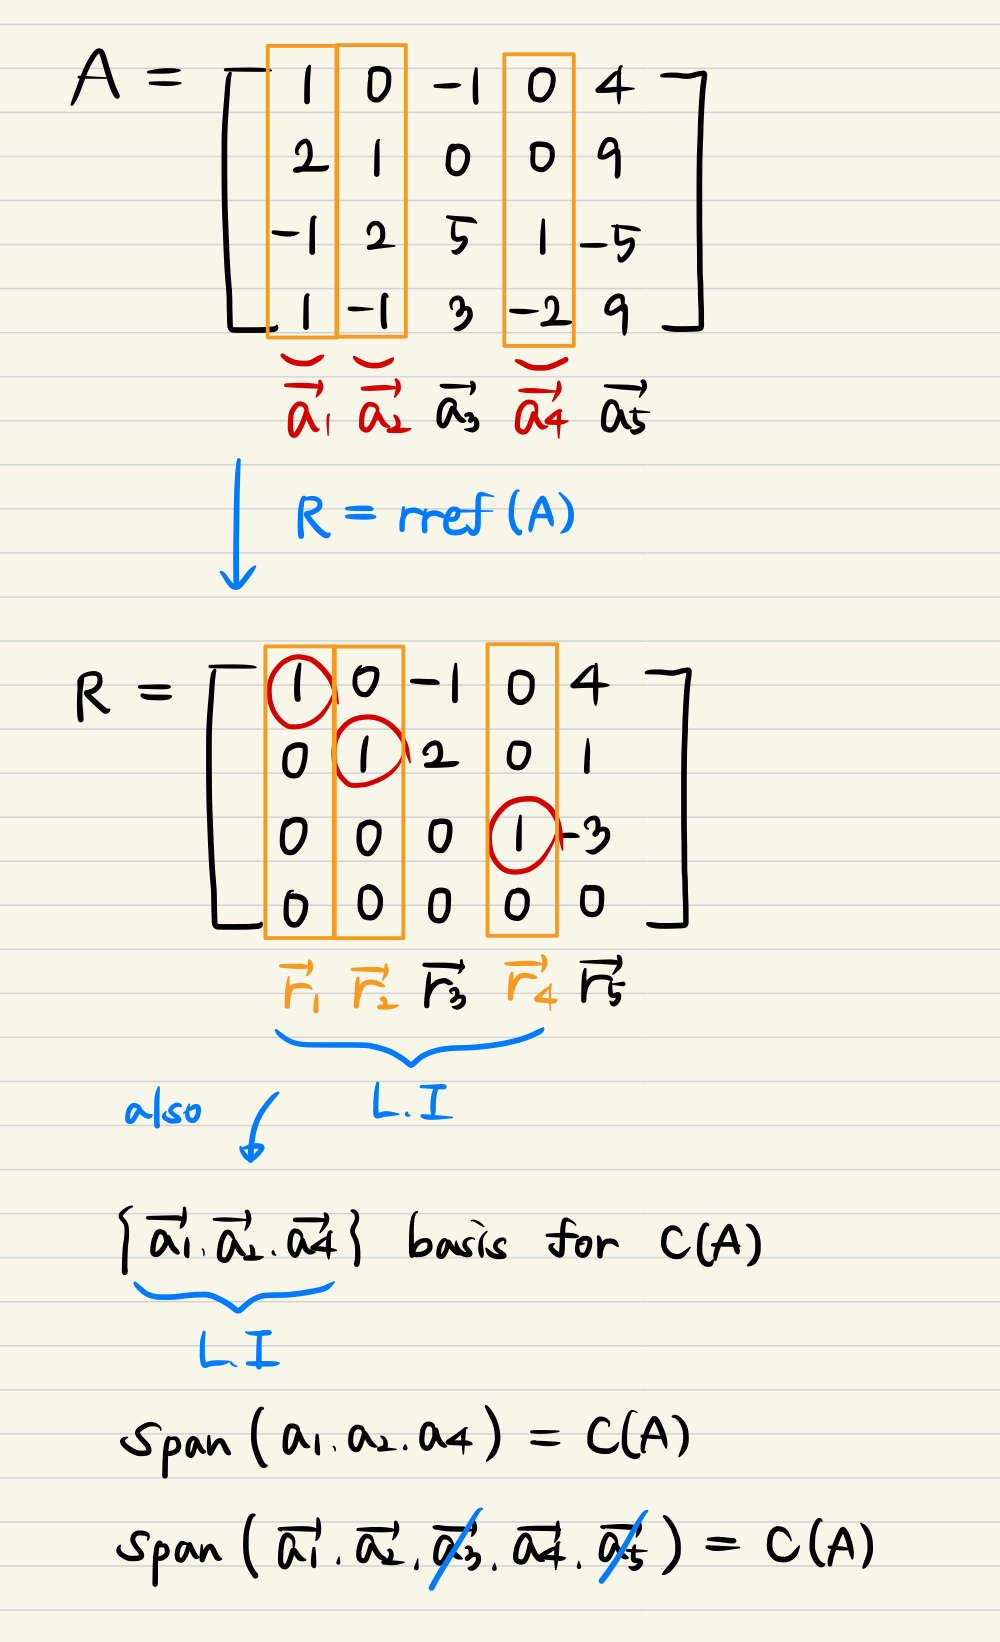 A = [ 1 0 -1 0 4
2 1 0 0 9
-1 2 5 1 -5
1 -1 3 -2 9 ]
a⃗1 a⃗2 a⃗3 a⃗4 a⃗5
R = rref (A)
R = [ 1 0 -1 0 4
0 1 2 0 1
0 0 0 1 -3
0 0 0 0 0 ]
r⃗1 r⃗2 r⃗3 r⃗4 r⃗5
L.I
also
{a⃗1. a⃗2. a⃗4} basis for C(A)
L.I
span (a1. a2. a4) = C(A)
span (a⃗1. a⃗2. a⃗3. a⃗4. a⃗5) = C(A)